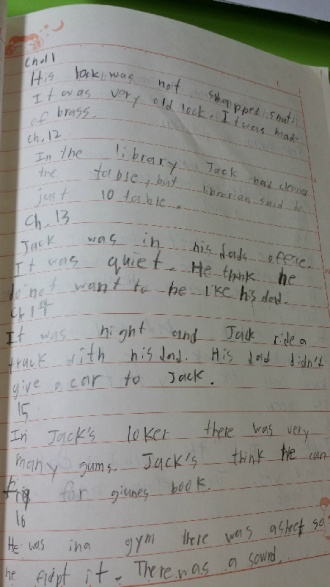 Ch.11
His lock was not snapped shut.
It was very old lock. It was made
of brass.
Ch.12
In the library Jack has clening
the table, but librarian said to
just 10 table.
Ch.13
Jack was in his dads offese.
It was quiet. He think he
do not want to be like his dad.
It was night and Jack ride a
track with his dad. His dad didn't
give a car to Jack.
15
In Jack's loker there was very
many gums. Jack's think he can
for giunes book.
16
He was in a gym there was so
he it. There was a sound.